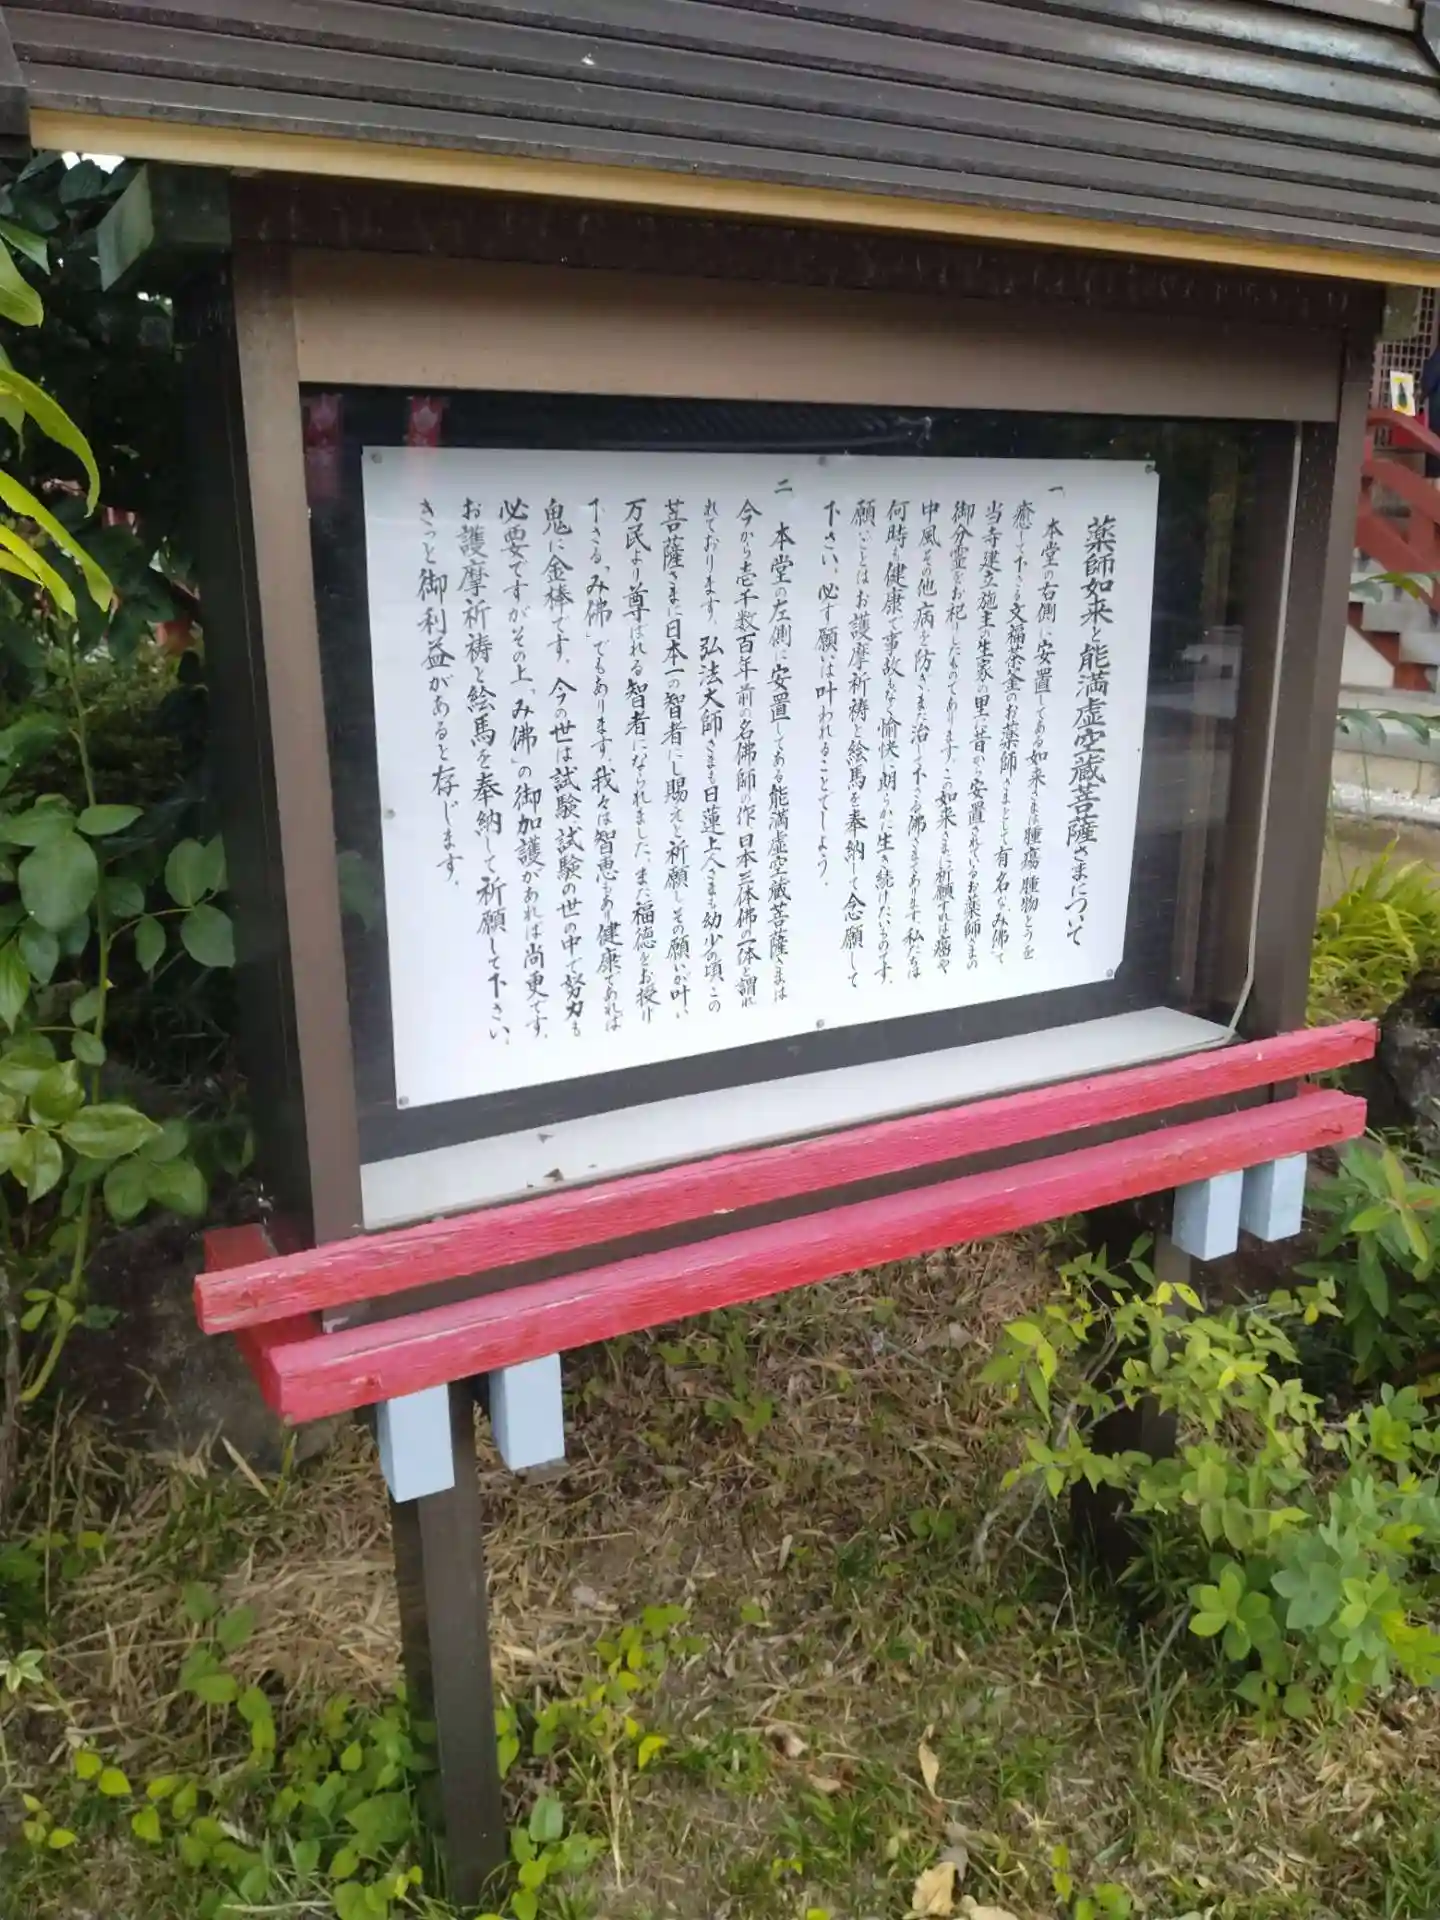 薬師如来と能満虚空蔵菩薩さまについて
一、本堂の右側に安置してある如来さまは腫瘍、腫物とうを
癒して下さる文福茶釜のお薬師さまとして有名な「み佛」で
当寺建立施主の生家の里に昔から安置されているお薬師さまの
御分霊をお祀りしたものであります。この如来さまに祈願すれば癌や
中風、その他病を防ぎ、また治して下さる佛さまであります。私たちは
何時も健康で事故もなく愉快に朗らかに生き続けたいものです。
願いごとはお護摩祈祷と絵馬を奉納して念願して
下さい、必ず願いは叶われることでしょう。
二、本堂の左側に安置してある能満虚空蔵菩薩さまは
今から壱千数百年前の名佛師の作、日本三体佛の一体と謂れ
れております。弘法大師さまも日蓮上人さまも幼少の頃、この
菩薩さまに日本一の智者にし賜えと祈願しその願いが叶い、
万民より尊ばれる智者になられました。また福徳をお授け
下さる「み佛」でもあります。我々は智恵もあり健康であれば
鬼に金棒です。今の世は試験、試験の世の中で努力も
必要ですがその上「み佛」の御加護があれば尚更です。
お護摩祈祷と絵馬を奉納して祈願して下さい、
きっと御利益があると存じます。